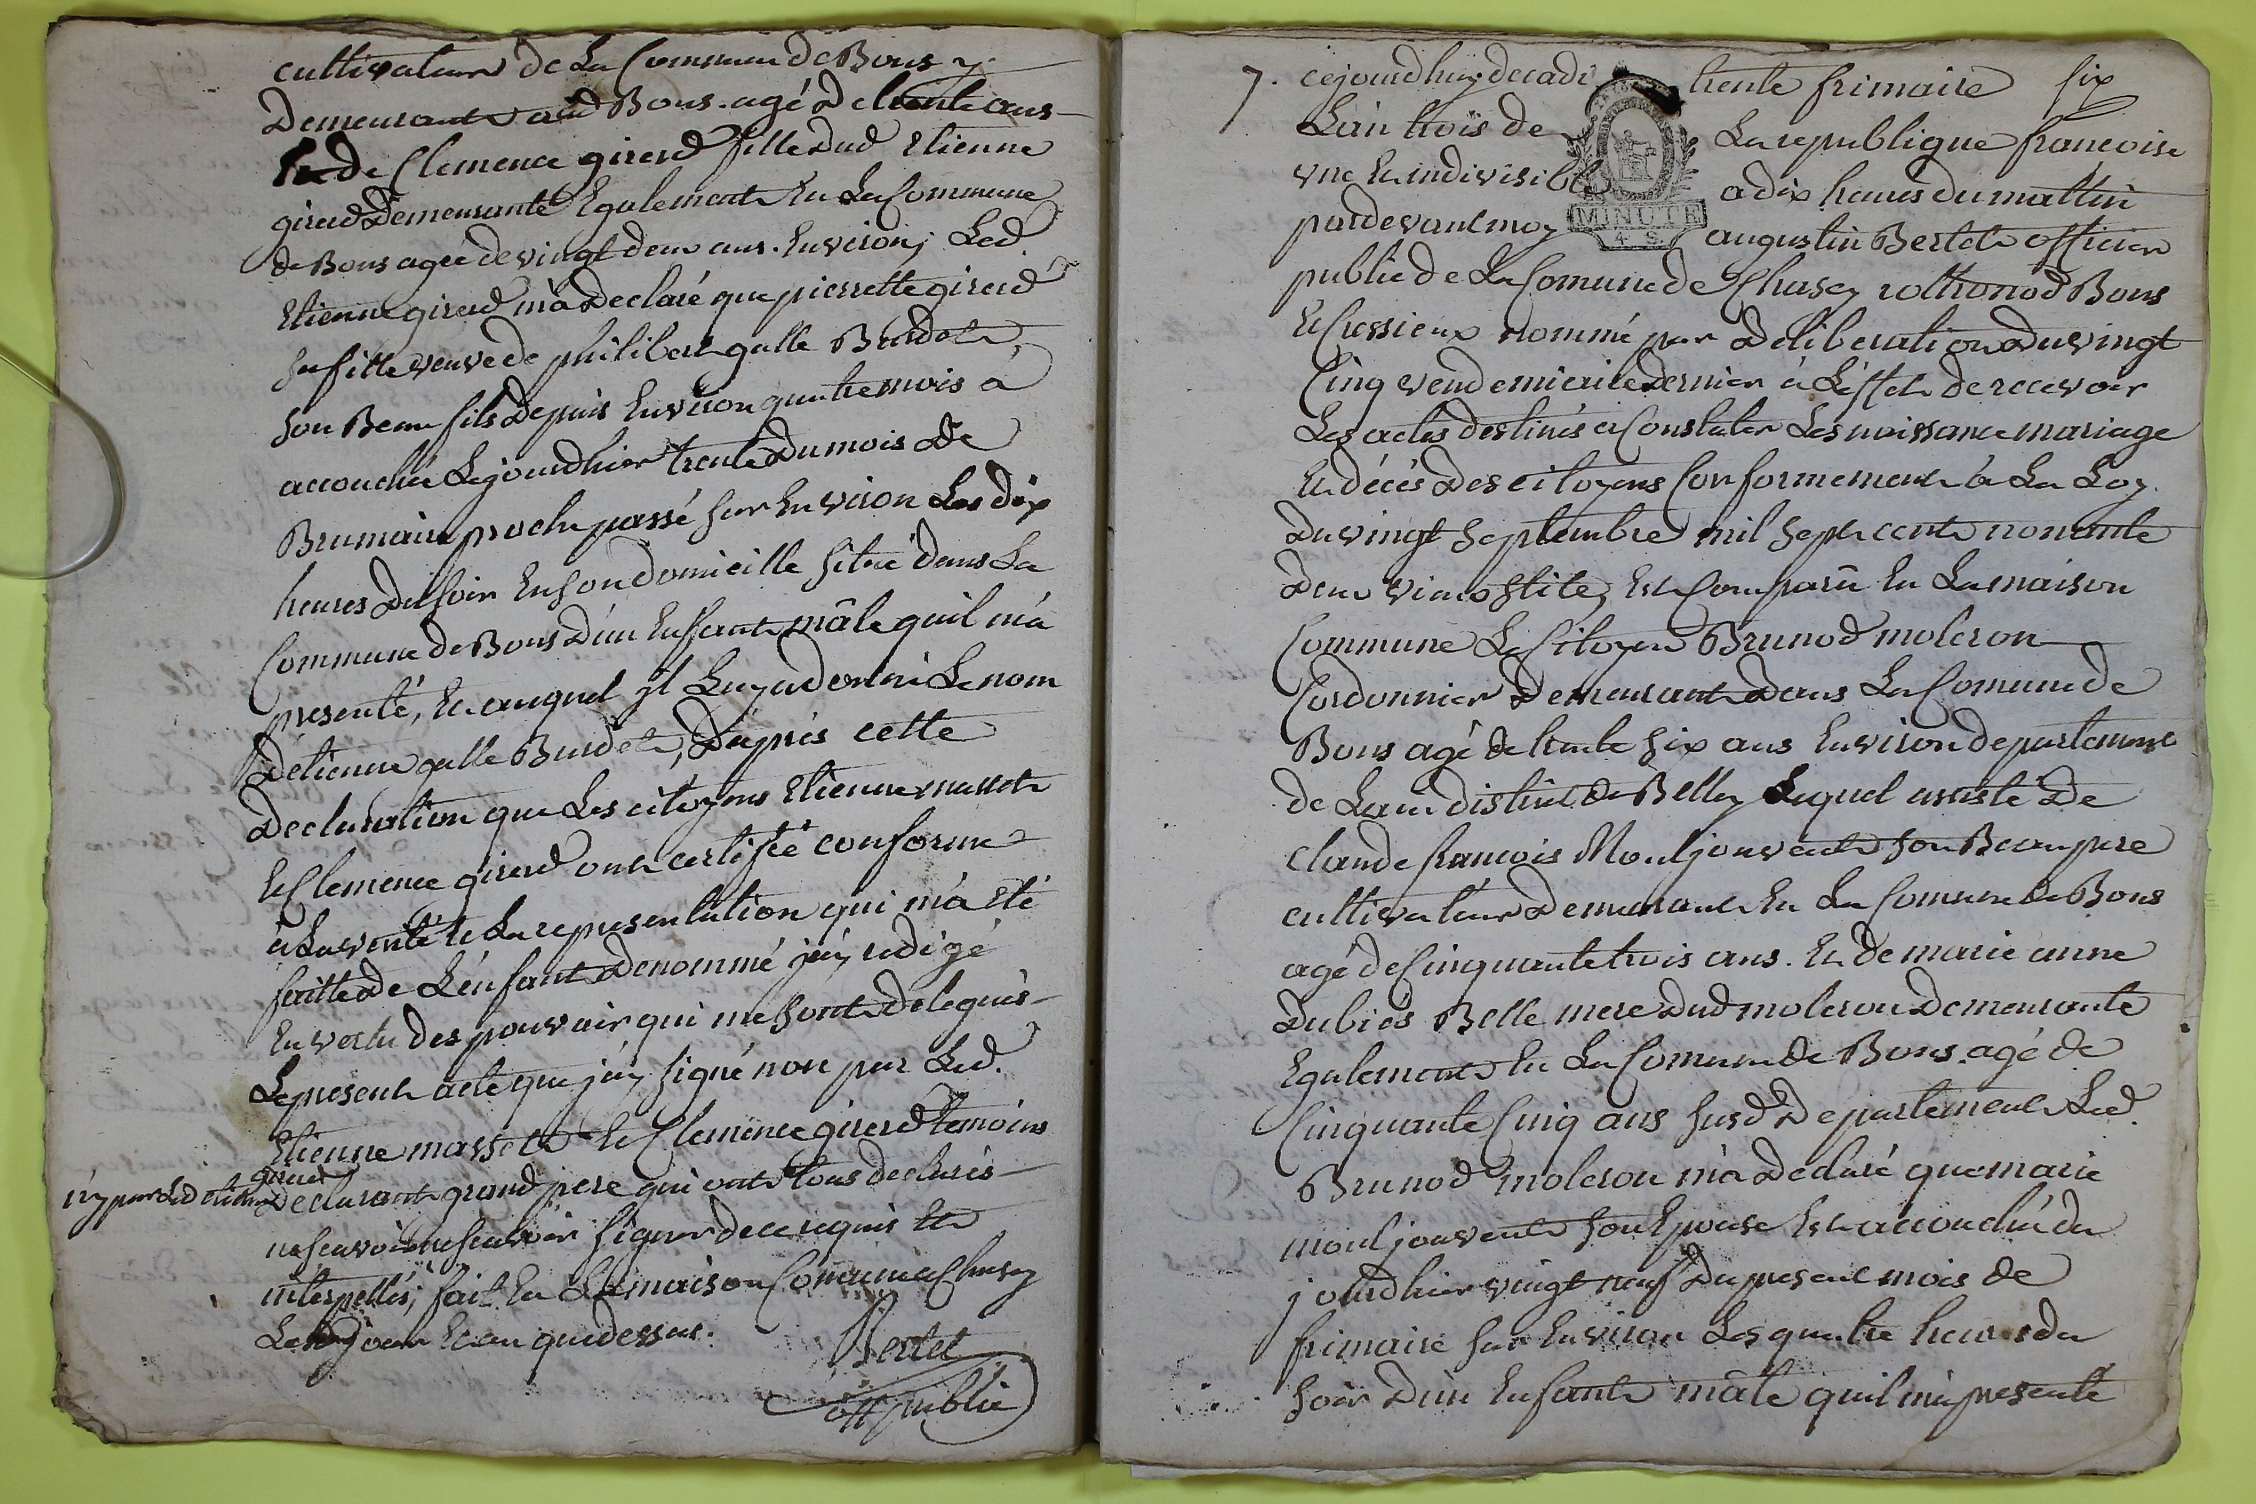 cultivateur de La Commune de Bons y
Demeurant aud Bons. agé De trente ans
Et de Clemence girerd fille Dud Etienne
girerd Demeurante Egalement En La Commune
de Bons agée de vingt deux ans. Environ; Led
Etienne girerd m'a Declaré que pierrette girerd
sa fille veuve de philibert galle Burdet
son Beau fils Depuis Environ quatre mois a
accouchée Le jourdhier trente Du mois De
Brumaire proche passé sur Environ Les dix
heures Du soir En son domicille situé dans La
Commune de Bons D'un Enfant mâle quil m'a
presenté, Et auquel jl Luy a donné Le nom
D'etienne galle Burdet, D'aprés cette
Declaration que Les citoyens Etienne massot
Et Clemence girerd ont certifiée conforme
à La verité et La representation qui m'a Eté
faitte De L'enfant Denommé j'ay redigé
En vertu des pouvoir qui me sont Delegués
Le present acte que j'ay signé non par Led.
Etienne massot et Clemence girerd temoins
ny par Led etienne girerd
Declarant grand pere qui ont tous declarés
ne scavoir signer de ce requis Et
interpellés; fait En La maison Comune a Chasey
Les jour Et an que dessus.
Bertet
off public
7. cejourdhuy decadi trente frimaire six
L'an trois de La republique francoise
vne Et indivisible a dix heures du mattin
pardevant moy augustin Bertet officier
MINUTE
4. S.
public de La Comune de Chasey rothonod Bons
Et Cressieux nommé par Deliberation Du vingt
Cinq vendemiaire Dernier à L'effet de recevoir
Les actes destinés a Constater Les naissance mariage
Et décés Des citoyens Conformement à La Loy
Du vingt septembre mil sept cent nonante
Deux vieux stile, Est Comparu En La maison
Commune Le Citoyen Brunod moleron
Cordonnier Demeurant Dans La Comune de
Bons agé de trente six ans Environ departement
de L'ain district de Belley Lequel assisté De
Claude francois Montjouvent son Beaupere
cultivateur Demeurant En La Comune de Bons
agé de Cinquante trois ans. Et De marie anne
Dubiés Belle mere Dud moleron Demeurante
Egalement En La Comune de Bons. agé de
Cinquante Cinq ans susd Departement Led.
Brunod moleron m'a Declaré que marie
montjouvent son Epouse Est accouchée du
jourdhier vingt neuf Du present mois de
frimaire sur Environ Les quatre heures du
soir D'un Enfant mâle quil m'a presenté